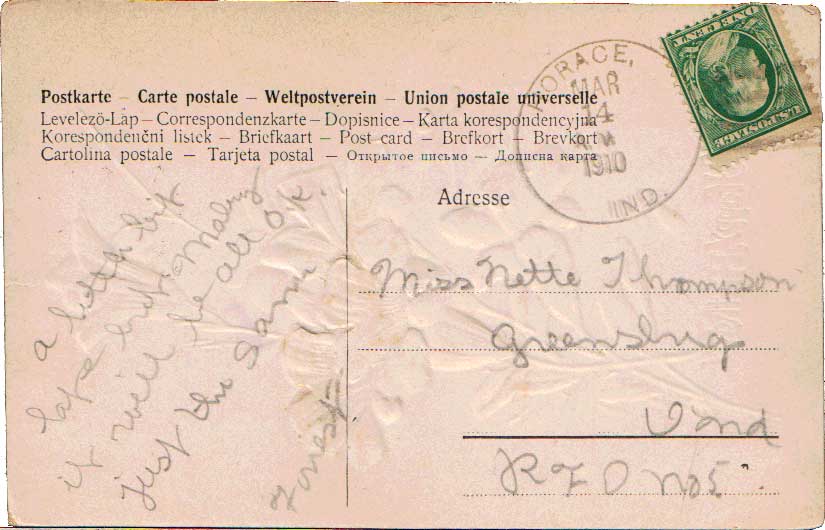 Postkarte – Carte postale – Weltpostverein – Union postale universelle
Levelezö-Lap – Correspondenzkarte – Dopisnice – Karta korespondencyjna
Korespondenční listek – Briefkaart – Post card – Brefkort – Brevkort
Cartolina postale – Tarjeta postal – Открытое письмо – Дописна карта
HORACE,
MAR
4
1910
IND.
U.S. POSTAGE
ONE CENT
Adresse
Miss Nette Thompson
Greensburg
Ind
R F D No 5.
a little bit
late but
it will be all O.K.
just the same
Forest